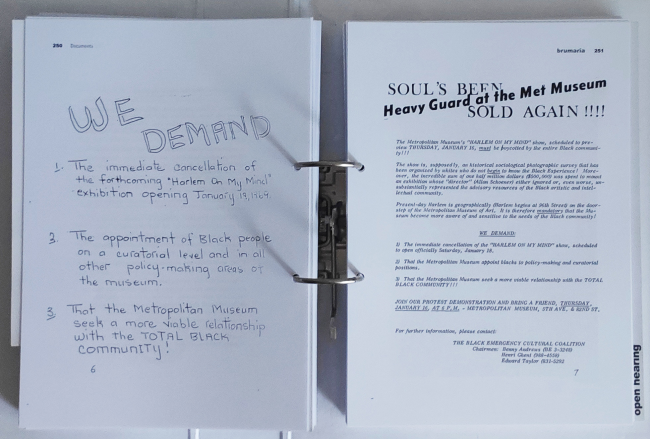 250 Documents
WE
DEMAND
1. The immediate cancellation of
the forthcoming "Harlem On My Mind"
exhibition opening January 18, 1969.
2. The appointment of Black people
on a curatorial level and in all
other policy-making areas of
the museum.
3. That the Metropolitan Museum
seek a more viable relationship
with the TOTAL BLACK
COMMUNITY!
6
brumaria 251
SOUL'S BEEN
Heavy Guard at the Met Museum
SOLD AGAIN !!!!
The Metropolitan Museum's "HARLEM ON MY MIND" show, scheduled to pre-
view THURSDAY, JANUARY 16, must be boycotted by the entire Black communi-
ty!!!
The show is, supposedly, an historical sociological photographic survey that has
been organized by whites who do not begin to know the Black Experience! More-
over, the incredible sum of one half million dollars ($500,000) was spent to mount
an exhibition whose "director" (Allon Schoener) either ignored or, even worse, un-
substantially represented the advisory resources of the Black artistic and intel-
lectual community.
Present-day Harlem is geographically (Harlem begins at 96th Street) on the door-
step of the Metropolitan Museum of Art. It is therefore mandatory that the Mu-
seum become more aware of and sensitive to the needs of the Black community!
WE DEMAND:
1) The immediate cancellation of the "HARLEM ON MY MIND" show, scheduled
to open officially Saturday, January 18.
2) That the Metropolitan Museum appoint blacks to policy-making and curatorial
positions.
3) That the Metropolitan Museum seek a more viable relationship with the TOTAL
BLACK COMMUNITY!!!
JOIN OUR PROTEST DEMONSTRATION AND BRING A FRIEND, THURSDAY,
JANUARY 16, AT 6 P.M. - METROPOLITAN MUSEUM, 5TH AVE. & 82ND ST.
For further information, please contact:
THE BLACK EMERGENCY CULTURAL COALITION
Chairmen: Benny Andrews
Henri Ghent
Edward Taylor
7
open hearing